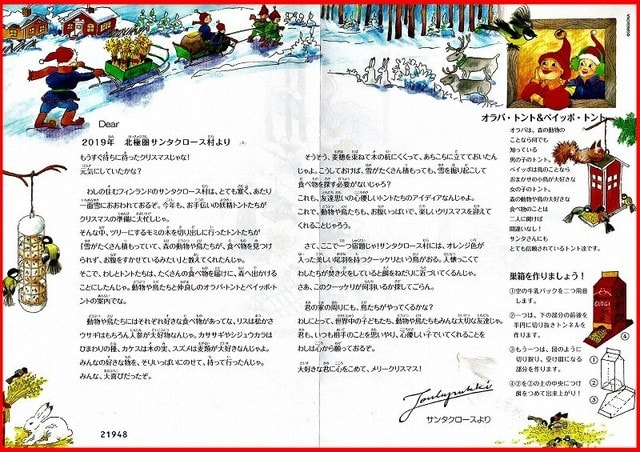 Dear
2019年 北極圏サンタクロース村より
もうすぐ待ちに待ったクリスマスじゃな!
元気にしていたかな?
わしの住むフィンランドのサンタクロース村は、とても寒く、あたり
一面雪におおわれておるぞ。今年も、お手伝いの妖精トントたちが
クリスマスの準備に大忙しじゃ。
そんな中、ツリーにするモミの木を切り出しに行ったトントたちが
「雪がたくさん積もっていて、森の動物や鳥たちが、食べ物を見つけ
られず、お腹をすかせているみたい」と教えてくれたんじゃ。
そこで、わしとトントたちは、たくさんの食べ物を届けに、森へ出かける
ことにしたんじゃ。動物や鳥たちと仲良しのオラパトントとペイッポト
ントの案内でな。
動物や鳥たちにはそれぞれ好きな食べ物があってな、リスは松かさ
ウサギはもちろん人参が大好物なんじゃ。カササギやシジュウカラは
ひまわりの種、カケスは木の実、スズメは麦類が大好きなんじゃよ。
みんなの好きな物を、そりいっぱいにのせて、持って行ったんじゃ。
みんな、大喜びだったぞ。
21948
そうそう、麦穂を束ねて木の杭にくくって、あちこちに立てておいたん
じゃよ。こうしておけば、雪がたくさん積もっても、雪を掘り起こして
食べ物を探す必要がないじゃろう?
これも、友達思いの心優しいトントたちのアイディアなんじゃよ。
これで、動物や鳥たちも、お腹いっぱいで、楽しいクリスマスを迎えて
くれることじゃろう。
さて、ここで一つ宿題じゃ!サンタクロース村には、オレンジ色が
入った美しい尾羽を持つクーッケリという鳥がおる。人懐っこくて
わしたちが焚き火をしていると餌をねだりに近づいてくるんじゃよ。
さあ、このクーッケリが何羽いるか探してごらん。
君の家の周りにも、鳥たちがやってくるかな?
わしにとって、世界中の子どもたち、動物や鳥たちもみんな大切な友達じゃ。
君も、いつも相手のことを思いやり、心優しい子でいてくれることを
わしは心から願っておるぞ。
大好きな君に心をこめて、メリークリスマス!
Joulupukki
サンタクロースより
オラパ・トント&ペイッポ・トント
オラパは、森の動物の
ことなら何でも
知っている
男の子のトント。
ペイッポは鳥のことなら
おまかせの小鳥が大好きな
女の子のトント。
森の動物や鳥の大好きな
食べ物のことは
二人に聞けば
間違いなし!
サンタさんにも
とても信頼されているトント達です。
巣箱を作りましょう!
①空の牛乳パックを二つ用意
します。
②一つは、下の部分を前後で
半円に切り抜きトンネルを
作ります。
③もう一つは、図のように
切り取り、受け皿になる
部分を作ります。
④②を③の上の中央につけ
餌をつめて出来上がり!
①
②
③